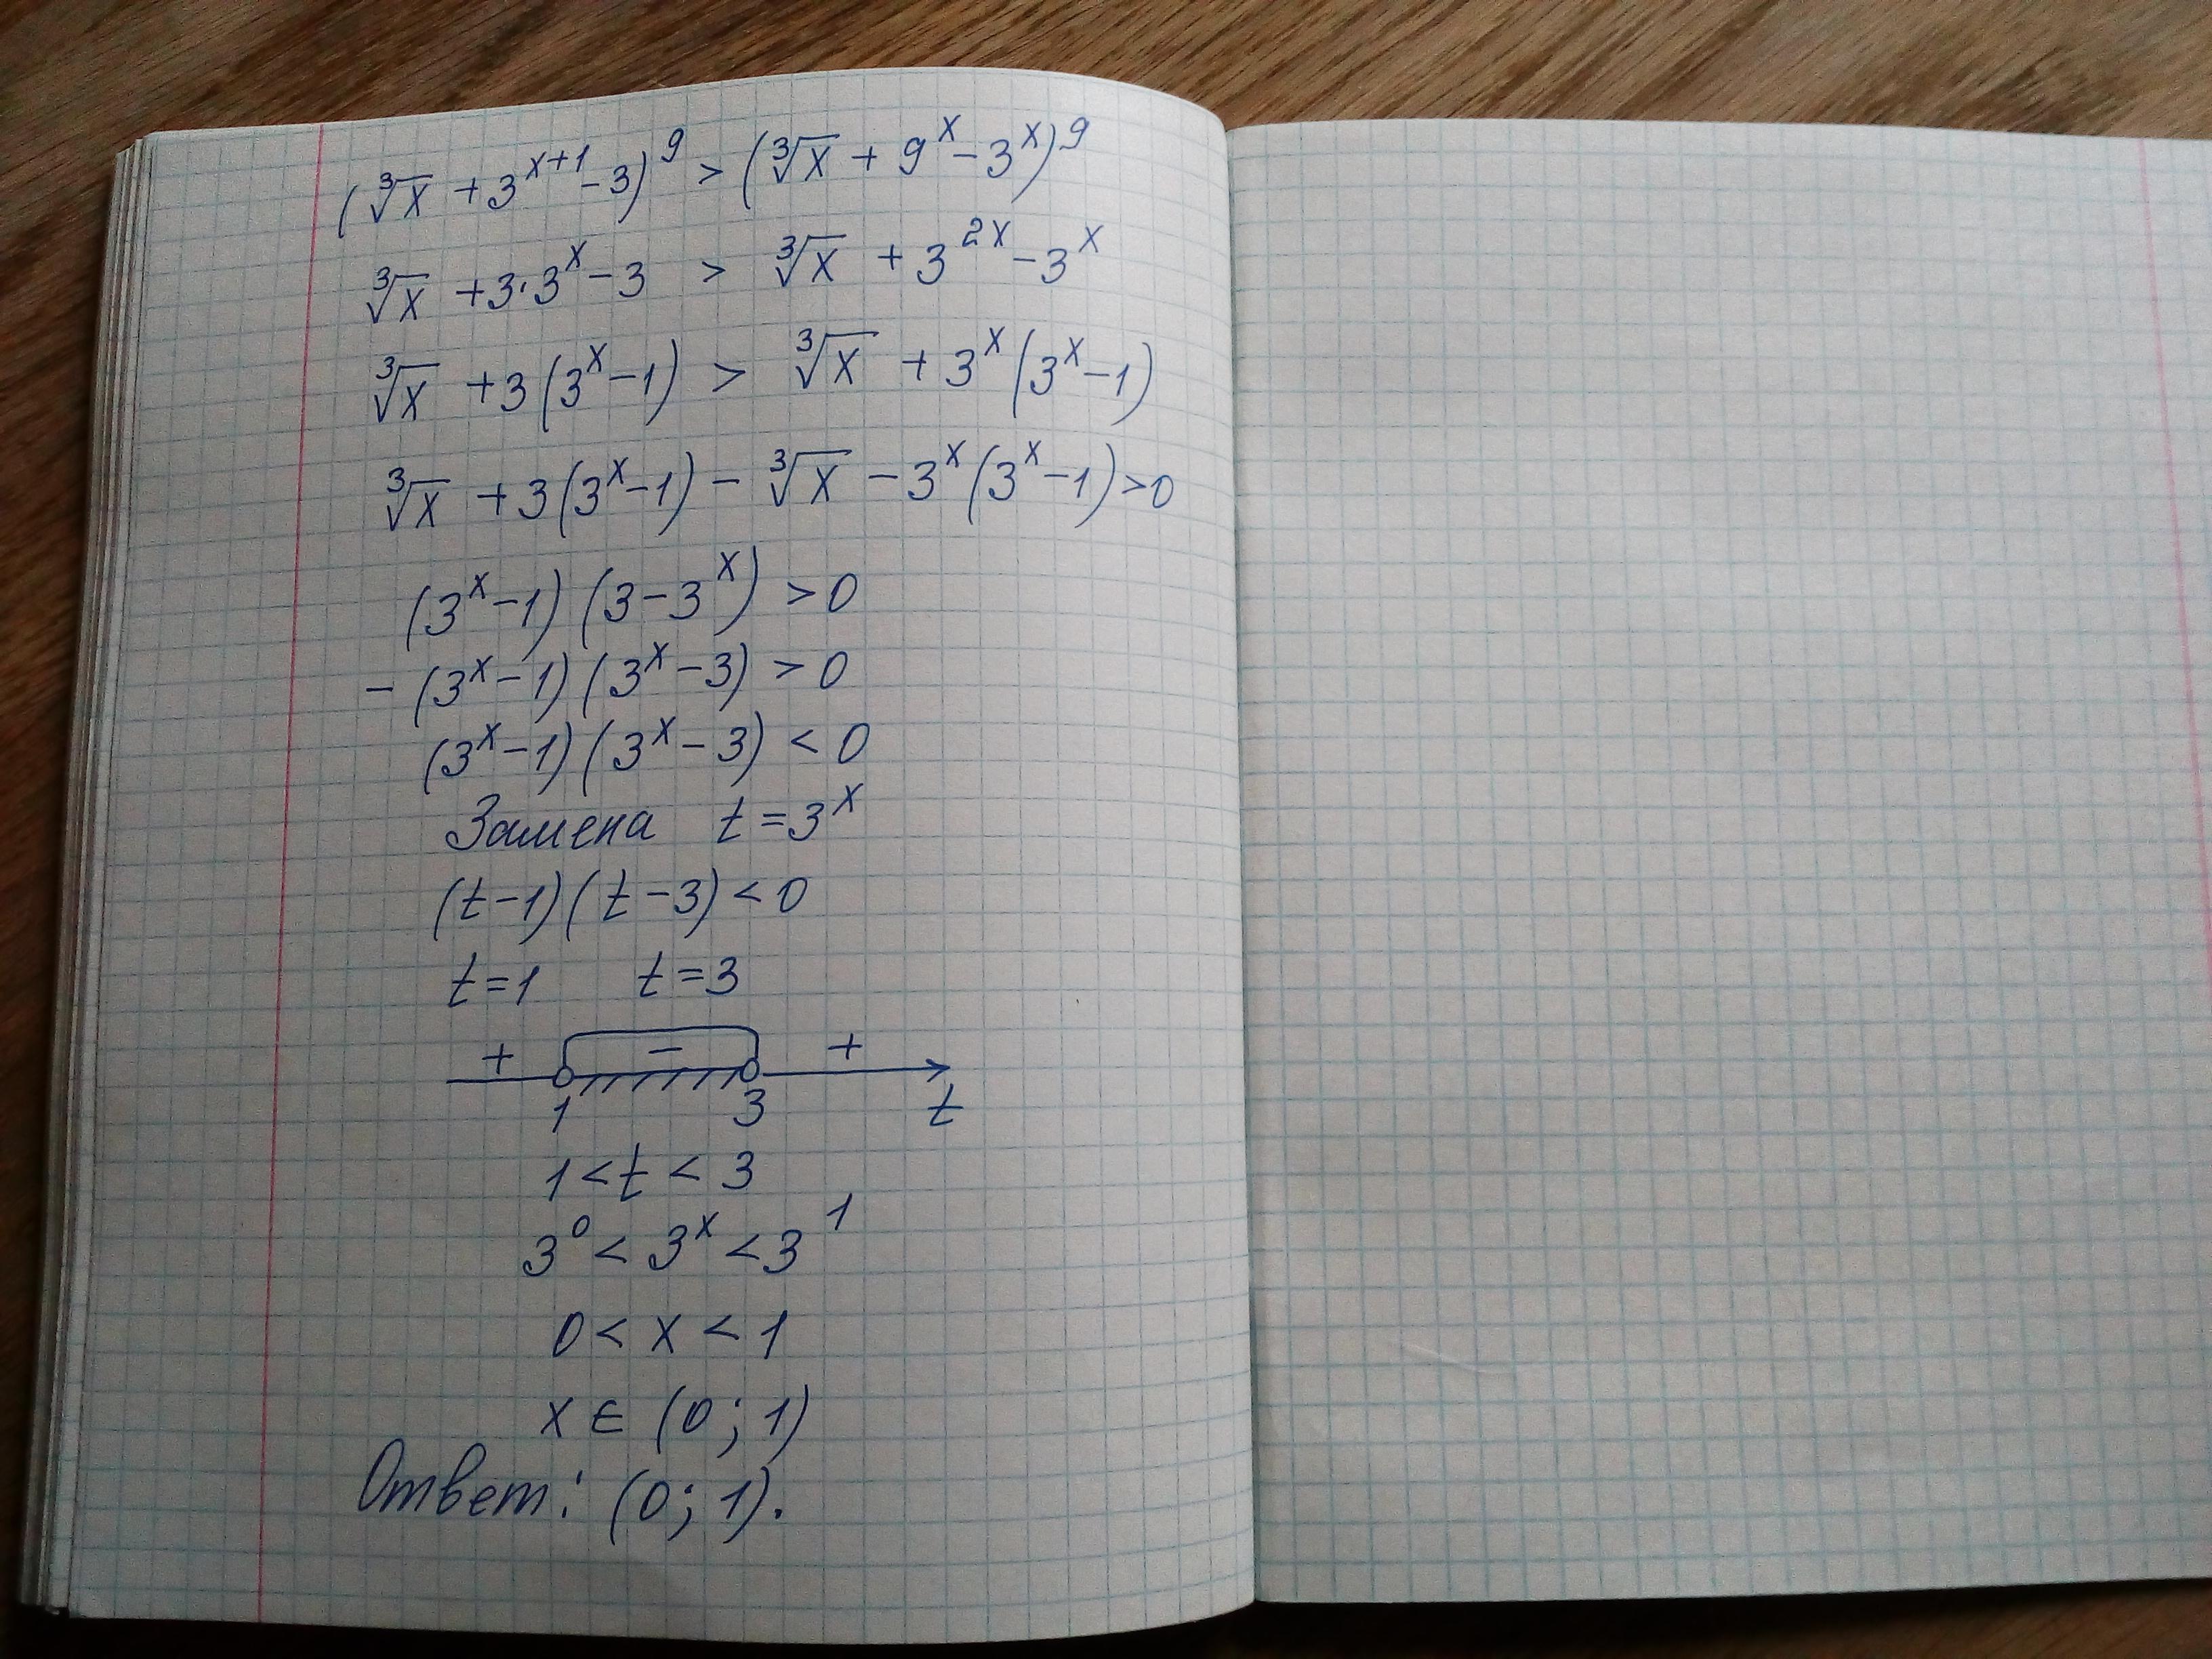 (∛x + 3^(x+1) − 3)^9 > (∛x + 9^x − 3^x)^9
∛x + 3·3^x − 3 > ∛x + 3^(2x) − 3^x
∛x + 3(3^x − 1) > ∛x + 3^x(3^x − 1)
∛x + 3(3^x − 1) − ∛x − 3^x(3^x − 1) > 0
(3^x − 1)(3 − 3^x) > 0
− (3^x − 1)(3^x − 3) > 0
(3^x − 1)(3^x − 3) < 0
Замена t = 3^x
(t − 1)(t − 3) < 0
t = 1 t = 3
+ − +
1 3 t
1 < t < 3
3^0 < 3^x < 3^1
0 < x < 1
x ∈ (0; 1)
Ответ: (0; 1).